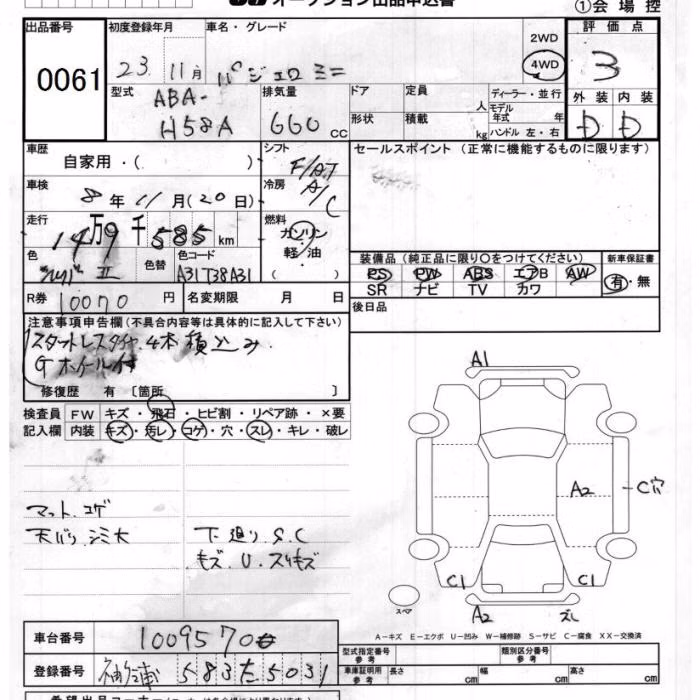 オークション出品申込書
①会場控
出品番号
0061
初度登録年月
23 11月
車名・グレード
パジェロミニ
2WD
4WD
評価点
3
型式
ABA-
H58A
排気量
660cc
ドア
形状
定員 人
積載 kg
ディーラー・並行
モデル年式 年
ハンドル 左・右
外装 内装
D D
車歴
自家用・( )
シフト
F/AT
セールスポイント (正常に機能するものに限ります)
車検
8年 11月(20日)
冷房
A/C
走行
14万9千585km
燃料
ガソリン・
軽油・
( )
色
シルバーII
色替
色コード
A31T38A31
装備品 (純正品に限り○をつけてください)
PS PW ABS エアB AW
SR ナビ TV カワ
新車保証書
有・無
R券 10070円
名変期限 月 日
後日品
注意事項申告欄(不具合内容等は具体的に記入して下さい)
スタットレスタイヤ.4本積込み.
Gホイール付
修復歴 有 〔箇所 〕
検査員 FW キズ・飛石・ヒビ割・リペア跡・×要
記入欄 内装 キズ・汚レ・コゲ・穴・スレ・キレ・破レ
マット.コゲ
天バリ.シミ大
下廻り.S.C
キズ.U.スリキズ
A1
A2
C穴
C1
C1
スペア
A2
ズレ
A-キズ E-エクボ U-凹み W-補修跡 S-サビ C-腐食 XX-交換済
車台番号
1009570
登録番号
583 5031
型式指定番号
参考
類別区分番号
参考
車庫証明用
参考
長さ cm
幅 cm
高さ cm